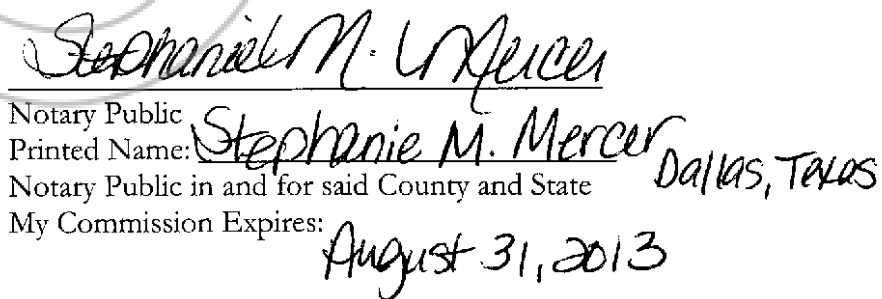 Stephanie M. Mercer
Notary Public
Printed Name: Stephanie M. Mercer
Notary Public in and for said County and State Dallas, Texas
My Commission Expires:
August 31, 2013